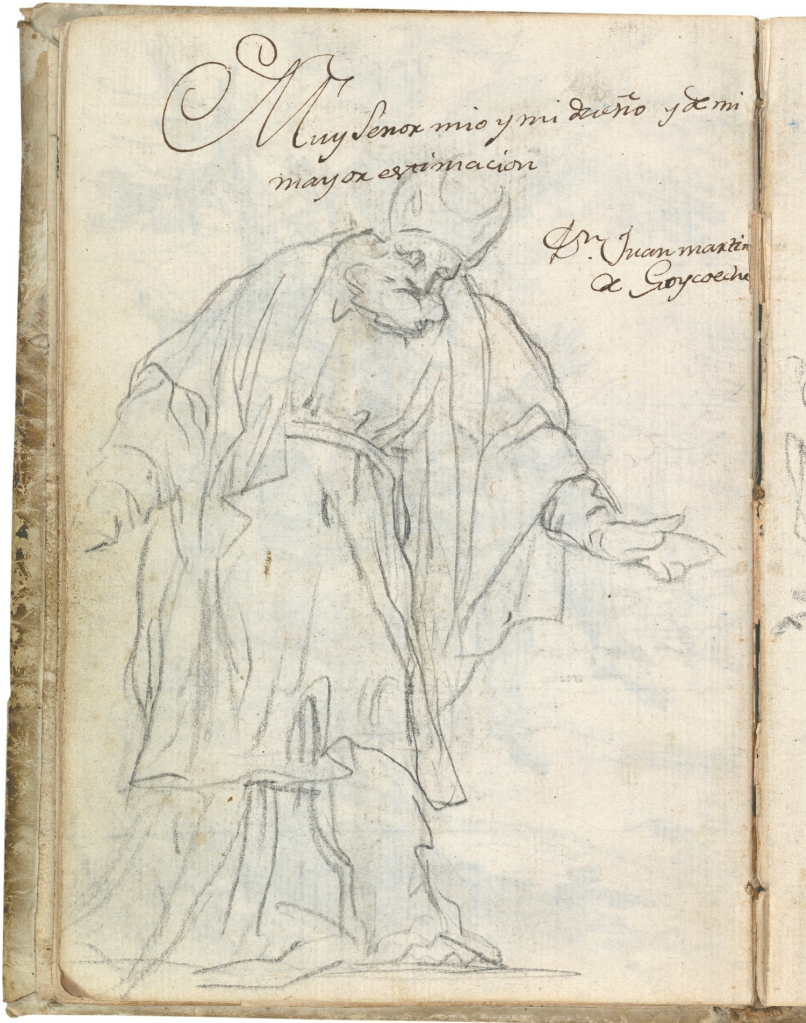 Muy Señor mio y mi dueño y de mi
mayor estimacion
Dn. Juan martin
de Goycoeche